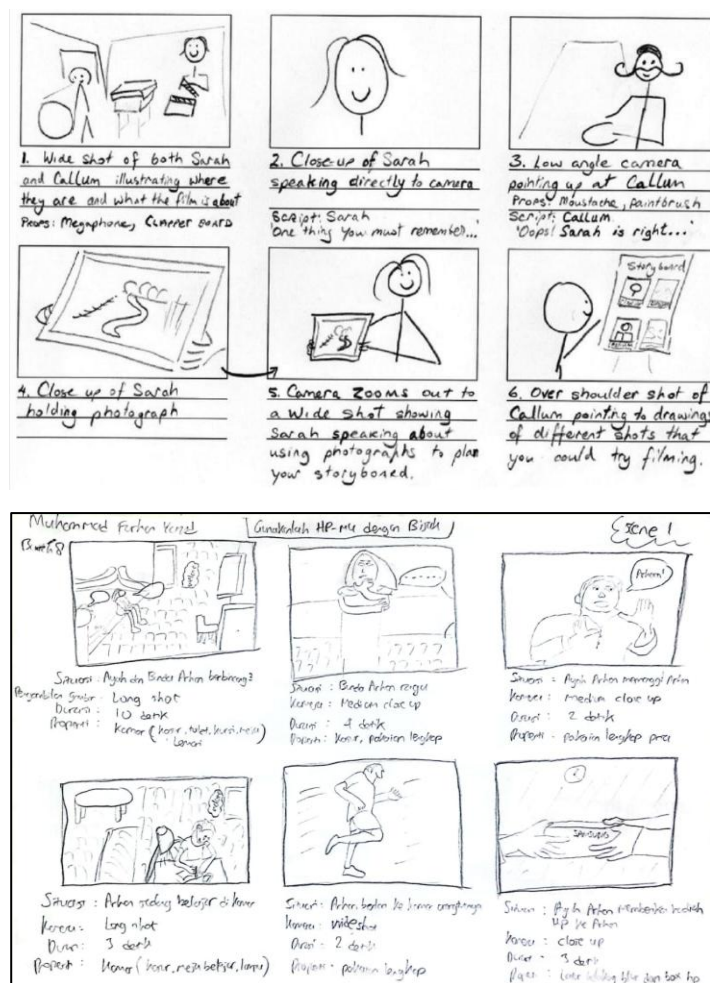 1. Wide shot of both Sarah
and Callum illustrating where
they are and what the film is about
Props: Megaphone, CLAPPER BOARD
2. Close-up of Sarah
speaking directly to camera
Script: Sarah
'One thing you must remember...'
3. Low angle camera
pointing up at Callum
Props: Moustache, paintbrush
Script: Callum
'Oops! Sarah is right...'
4. Close up of Sarah
holding photograph
5. Camera zooms out to
a wide shot showing
Sarah speaking about
using photographs to plan
your storyboared.
Storyboard
6. Over shoulder shot of
Callum pointing to drawings
of different shots that
you could try filming.
Muhammad Farhan
Gunakanlah HP-mu dengan Bijak
Scene 1
Situasi : Ayah dan Bunda Arhan
Pengambilan Gambar : Long shot
Durasi : 10 detik
Properti : Kamar (kasur, kursi, meja
lemari
Situasi : Bunda Arhan
Kamera : Medium close up
Durasi : 4 detik
Properti : Kasur, pakaian lengkap
Arhan!
Situasi : Ayah Arhan memanggil
Kamera : Medium close up
Durasi : 2 detik
Properti : pakaian lengkap pria
Situasi : Arhan sedang belajar di kamar
Kamera : Long shot
Durasi : 3 detik
Properti : Kamar (kasur, meja belajar, lampu)
Situasi : Arhan ke kamar
Kamera : wide shot
Durasi : 2 detik
Properti : pakaian lengkap
SAMSUNG
Situasi : Ayah Arhan memberikan hadiah
HP ke Arhan
Kamera : close up
Durasi : 3 detik
Properti : dan box hp